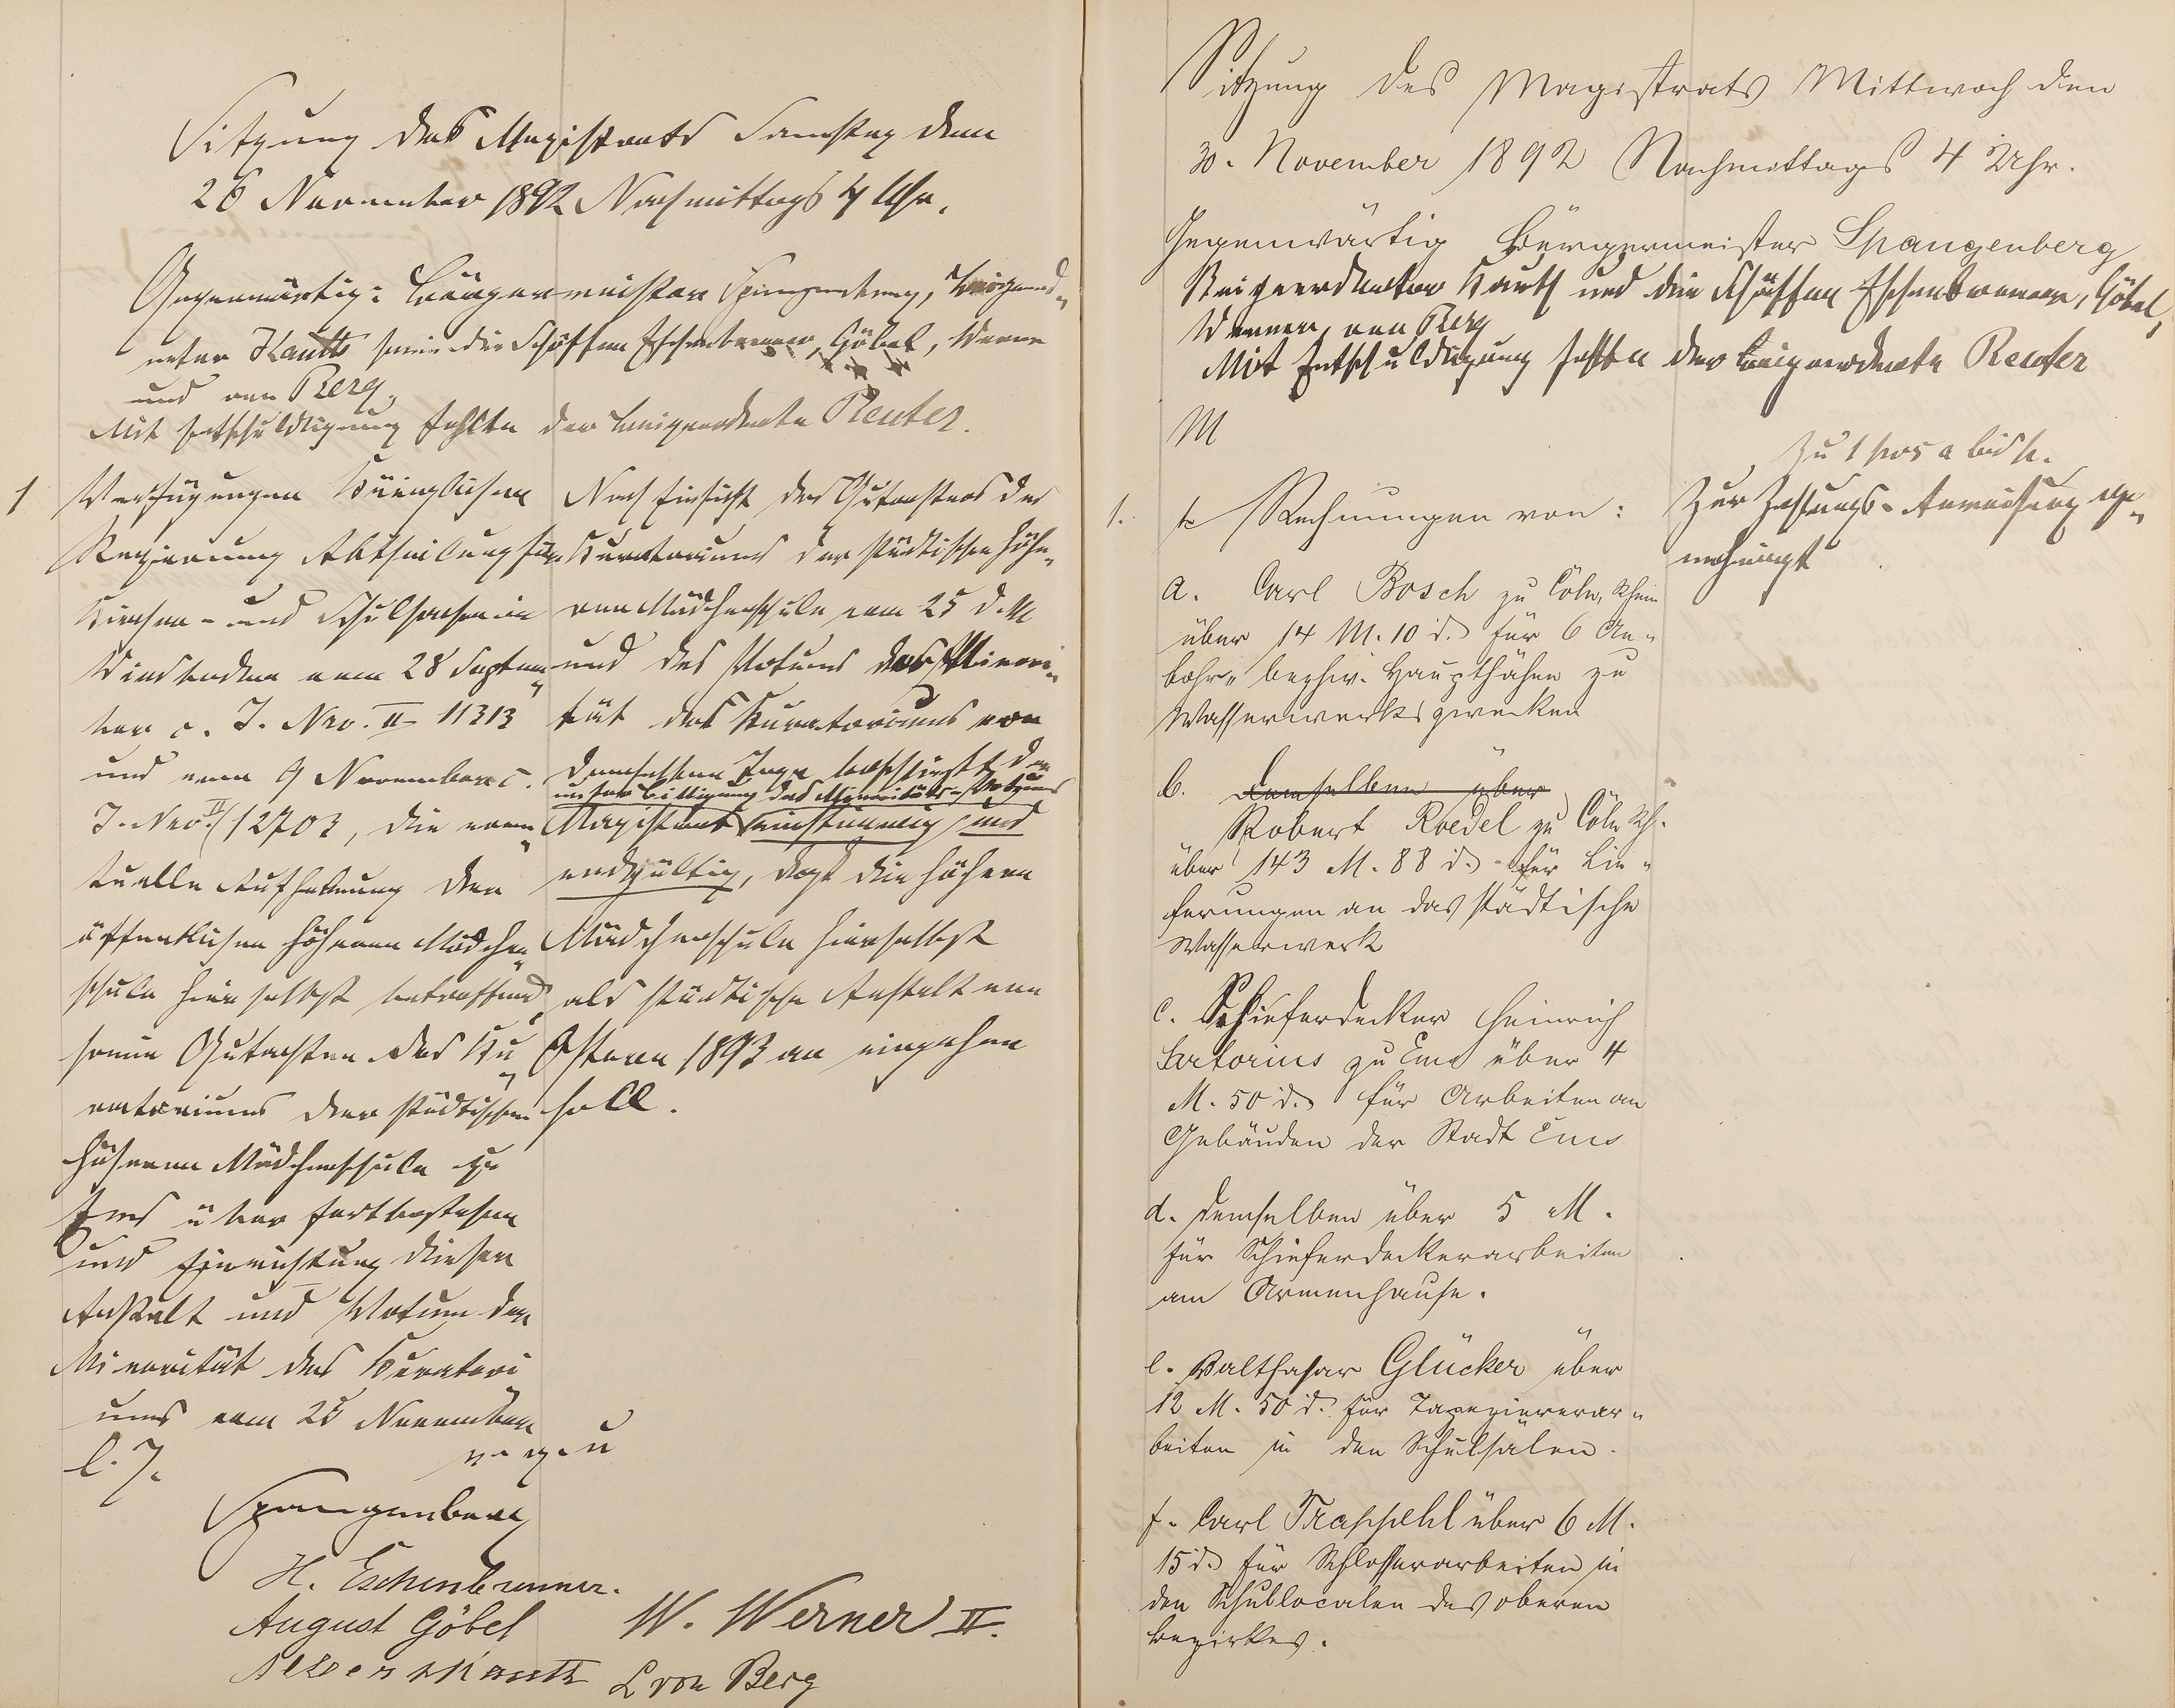 Sitzung des Magistrats Samstag den
26 November 1892 Nachmittags 4 Uhr.
Gegenwärtig: Bürgermeister Spangenberg, Beigeord„
neter Kauth sowie die Schöffen Eschenbrenner, Göbel, Werner
und von Berg.
Mit Entschuldigung fehlte der Beigeordnete Reuter.
1 Verfügungen Königlichen
Regierung Abtheilung für
Kirchen- und Schulsachen in
Wiesbaden vom 28 Septem„
ber c. J. Nro. II 11313
und vom 9 November c.
J. Nro. II 12703, die even„
tuelle Aufhebung der
öffentlichen höheren Mädchen„
schule hierselbst betreffend,
sowie Gutachten des Ku„
ratoriums der städtischen
höheren Mädchenschule zu
Ems über Fortbestehen
und Einrichtung dieser
Anstalt und Votum der
Minorität des Kuratori
ums vom 25 November
l. J.
Nach Einsicht des Gutachtens des
Kuratoriums der städtischen höhe„
ren Mädchenschule vom 25 d. M
und des Votums der Minori„
tät des Kuratoriums von
demselben Tage beschließt der
unter Billigung des Minoritäts-Votums
Magistrat einstimmig und
endgültig, daß die höhere
Mädchenschule hierselbst
als städtische Anstalt von
Ostern 1893 an eingehen
soll.
v. g. u
Spangenberg
H. Eschenbrenner.
August Göbel
W. Werner II.
Albert Kauth
L von Berg
Sitzung des Magistrats Mittwoch den
30. November 1892 Nachmittags 4 Uhr.
Gegenwärtig Bürgermeister Spangenberg
Beigeordneter Kauth und die Schöffen Eschenbrenner, Göbel,
Werner, von Berg
Mit Entschuldigung fehlte der Beigeordnete Reuter
M
1. Rechnungen von:
a. Carl Bosch zu Cöln, Rhein
über 14 M. 10 d. für 6 An„
bohr„ bezhw. Haupthähne zu
Wasserwerkszwecken
b. demselben über
Robert Roedel zu Cöln Rh.
über 143 M. 88 d. für Lie„
ferungen an das städtische
Wasserwerk
c. Schieferdecker Heinrich
Sartorius zu Ems über 4
M. 50 d. für Arbeiten an
Gebäuden der Stadt Ems
d. demselben über 5 M.
für Schieferdeckerarbeiten
am Armenhause.
e. Balthasar Glücker über
12 M. 50 d. für Tapeziererar„
beiten in den Schulsälen.
f. Carl Trappehl über 6 M.
15 d. für Schlosserarbeiten in
den Schullocalen des oberen
Bezirkes.
Zu 1 pos a bis h.
Zur Zahlungs-Anweisung ge„
nehmigt